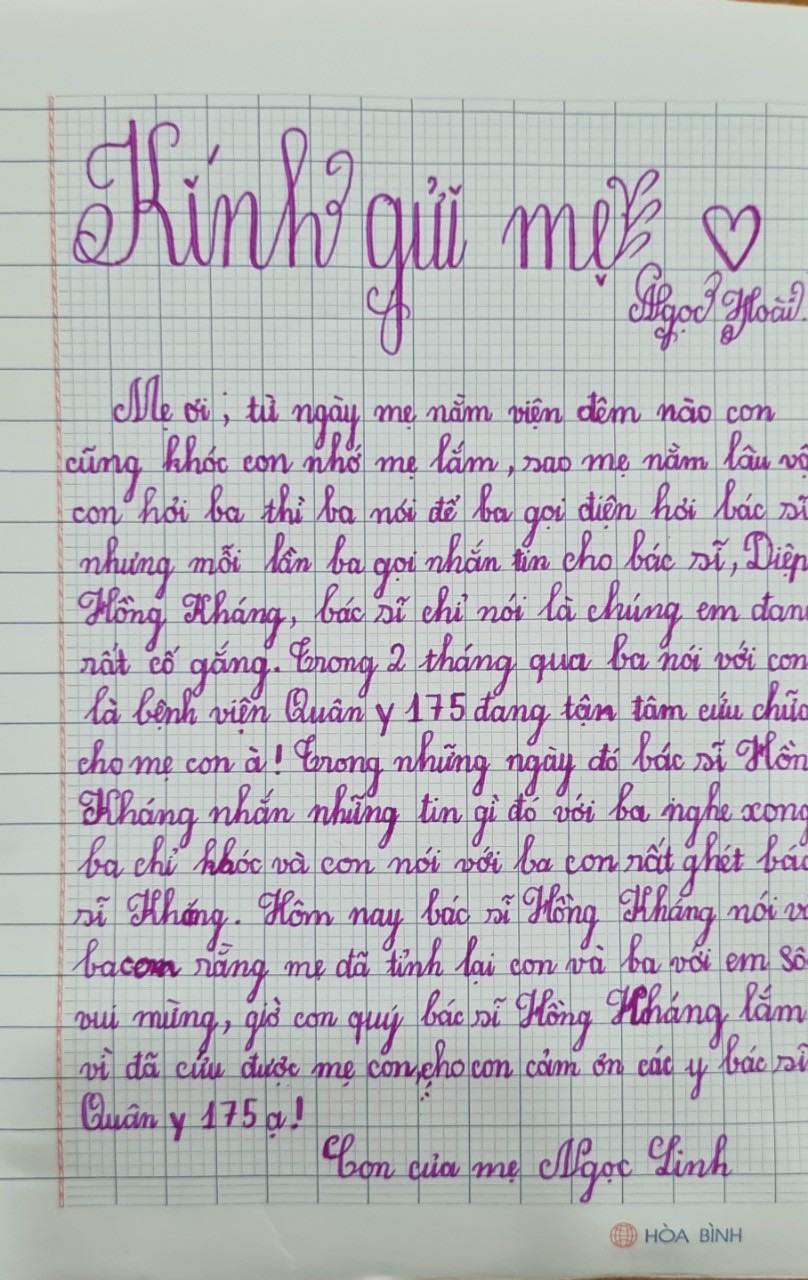 Kính gửi mẹ
Ngọc Hoài.
Mẹ ơi, từ ngày mẹ nằm viện đêm nào con
cũng khóc con nhớ mẹ lắm, sao mẹ nằm lâu vậ
con hỏi ba thì ba nói để ba gọi điện hỏi bác sĩ
nhưng mỗi lần ba gọi nhắn tin cho bác sĩ, Diệp
Hồng Kháng, bác sĩ chỉ nói là chúng em đan
rất cố gắng. Trong 2 tháng qua ba nói với con
là bệnh viện Quân y 175 đang tận tâm cứu chữa
cho mẹ con à! Trong những ngày đó bác sĩ Hồn
Kháng nhắn những tin gì đó với ba nghe xong
ba chỉ khóc và con nói với ba con rất ghét bác
sĩ Kháng. Hôm nay bác sĩ Hồng Kháng nói v
ba con rằng mẹ đã tỉnh lại con và ba với em Sô
vui mừng, giờ con quý bác sĩ Hồng Kháng lắm
vì đã cứu được mẹ con, cho con cảm ơn các y bác sĩ
Quân y 175 ạ!
Con của mẹ Ngọc Linh
HÒA BÌNH